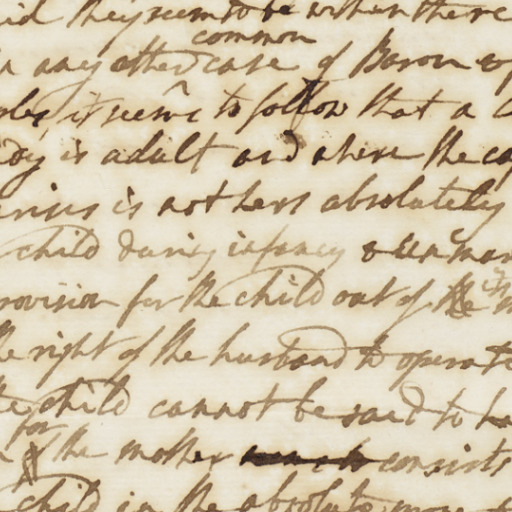 they seem to be within there
common
any other case of Baron &
it seems to follow that a
is adult and where the
is not hers absolutely
child during infancy & un mar
provision for the child out of the
the right of the husband to operate
the child cannot be said to ha
for
the mother consists
child in the absolute